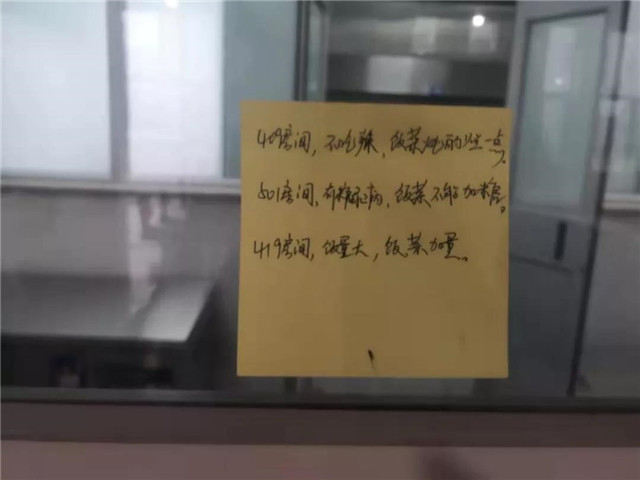 409房间，不吃辣，饭菜炖的烂一点。
501房间，有糖尿病，饭菜不能加糖。
419房间，饭量大，饭菜加量。